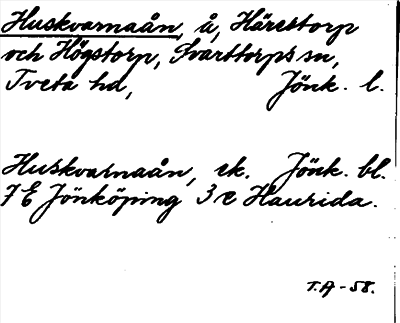 Huskvarnaån, å, Härestorp
och Högstorp, Svarttorps sn,
Tveta hd, Jönk. l.
Huskvarnaån, ek. Jönk. bl.
7 E Jönköping 3 e Haurida.
T.A-58.